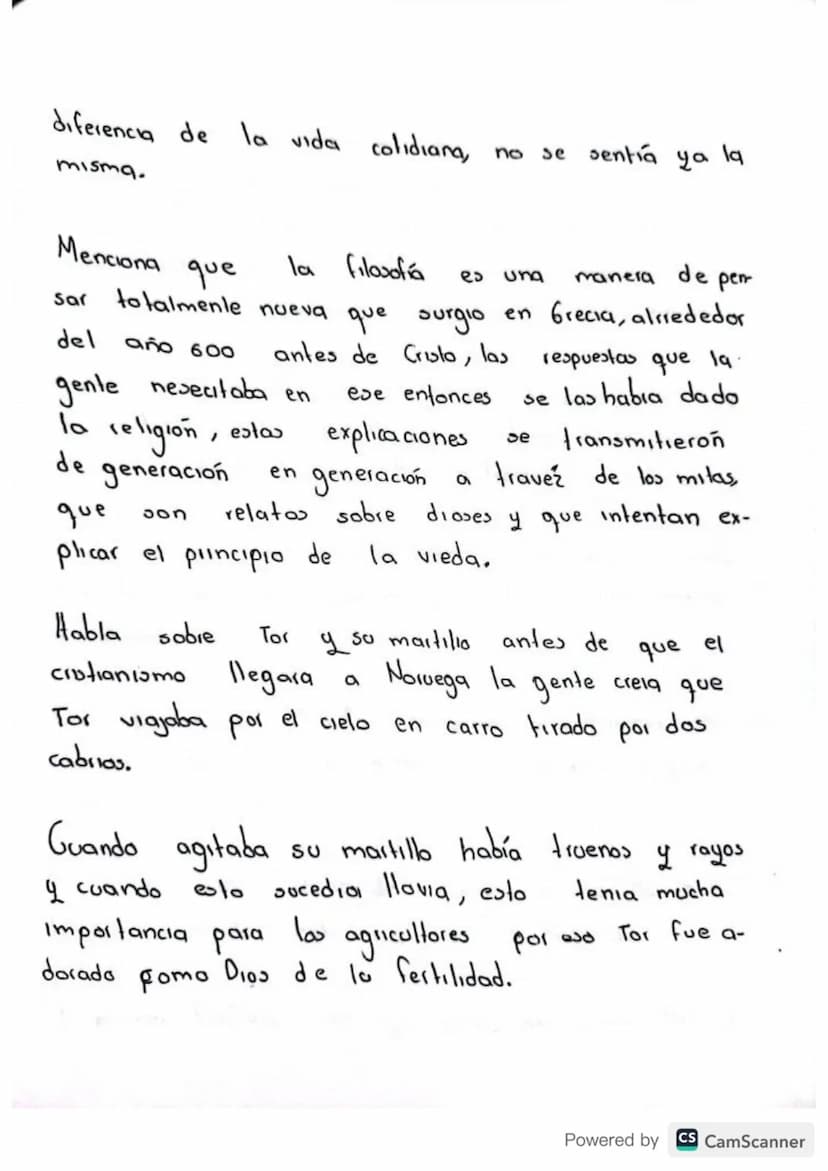 diferencia de la vida colidiana, no se sentía ya la
misma.
Menciona que la filosofía es una manera de pen-
sar totalmente nueva que surgio en Grecia, alrrededor
del año 600 antes de Cristo, las respuestas que la
gente nesecitaba en ese entonces se las habia dado
la religión, estas explicaciones se transmitierón
de generación en generación a travéz de los mitos,
que son relatos sobre dioses y que intentan ex-
plicar el principio de la vieda.
Habla sobre Tor y su martillo antes de que el
cristianismo llegara a Noruega la gente creia que
Tor viajaba por el cielo en carro tirado por dos
cabrios.
Cuando agitaba su martillo había truenos y rayos
y cuando esto sucedia llovia, esto tenia mucha
importancia para los agricultores por eso Tor fue a-
dorado como Dios de la fertilidad.
Powered by CS CamScanner